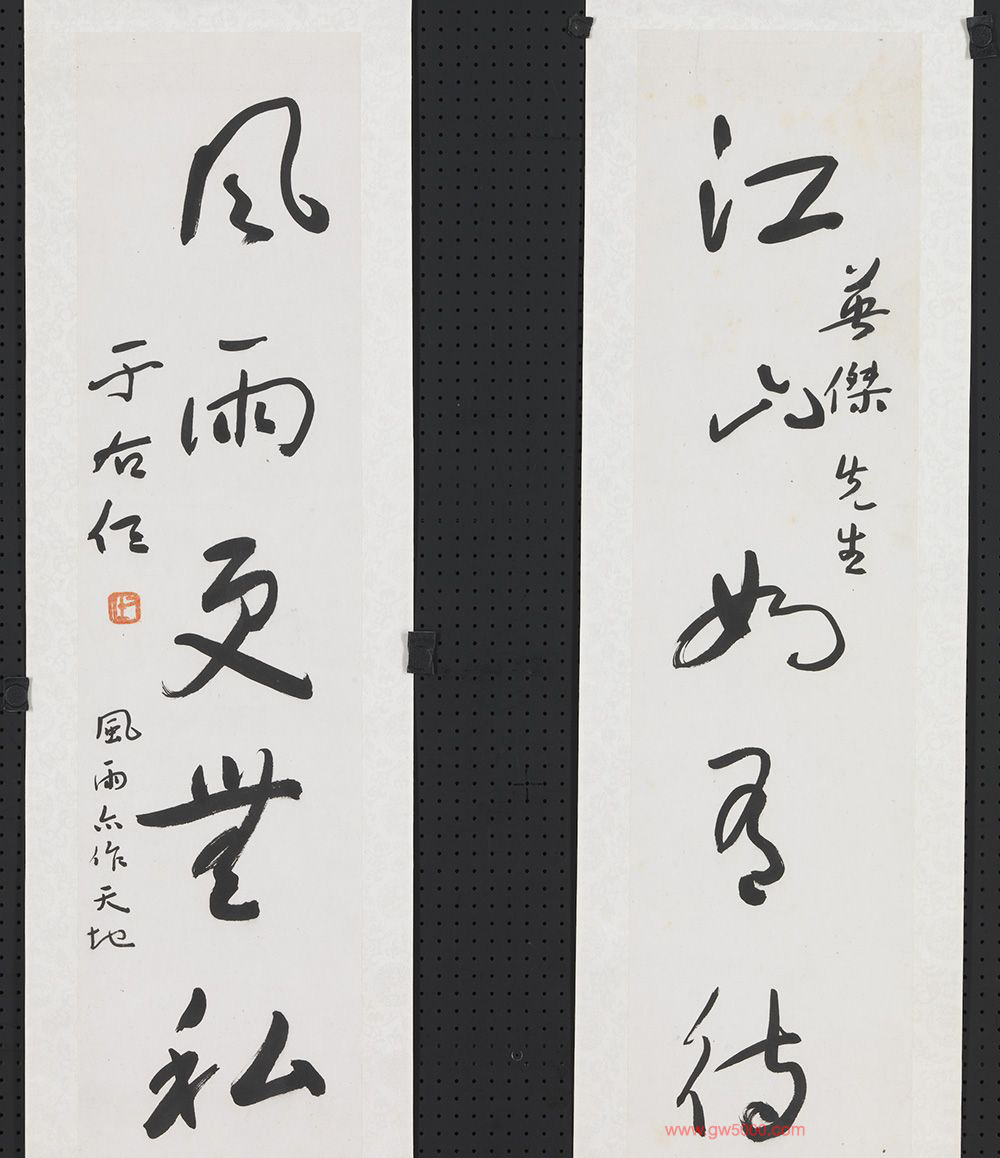 英傑先生
江山如有待
風雨更無私
于右任
風雨亦作天地
www.gw5000.com